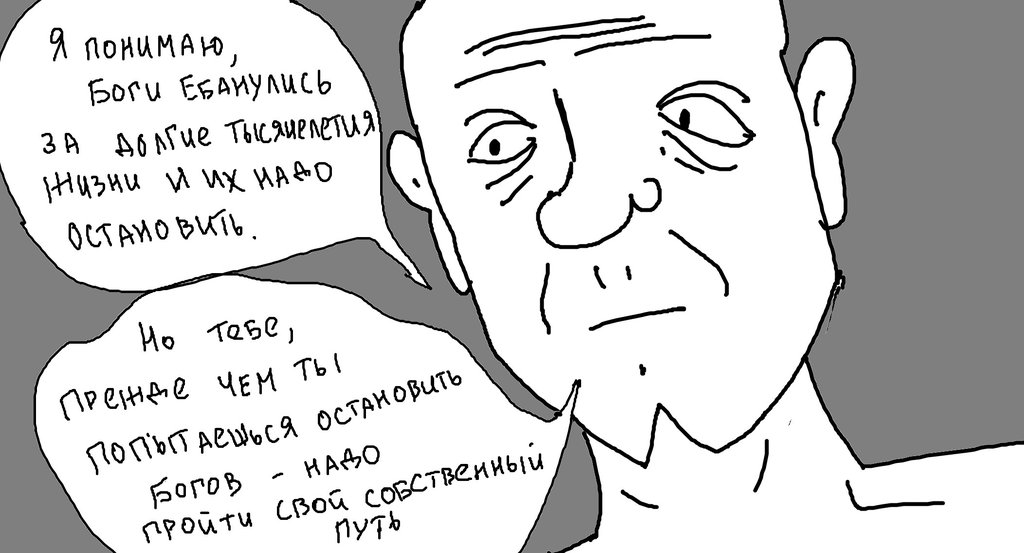 Я ПОНИМАЮ,
БОГИ ЕБАНУЛИСЬ
ЗА ДОЛГИЕ ТЫСЯЧЕЛЕТИЯ
ЖИЗНИ И ИХ НАДО
ОСТАНОВИТЬ.
НО ТЕБЕ,
ПРЕЖДЕ ЧЕМ ТЫ
ПОПЫТАЕШЬСЯ ОСТАНОВИТЬ
БОГОВ - НАДО
ПРОЙТИ СВОЙ СОБСТВЕННЫЙ
ПУТЬ